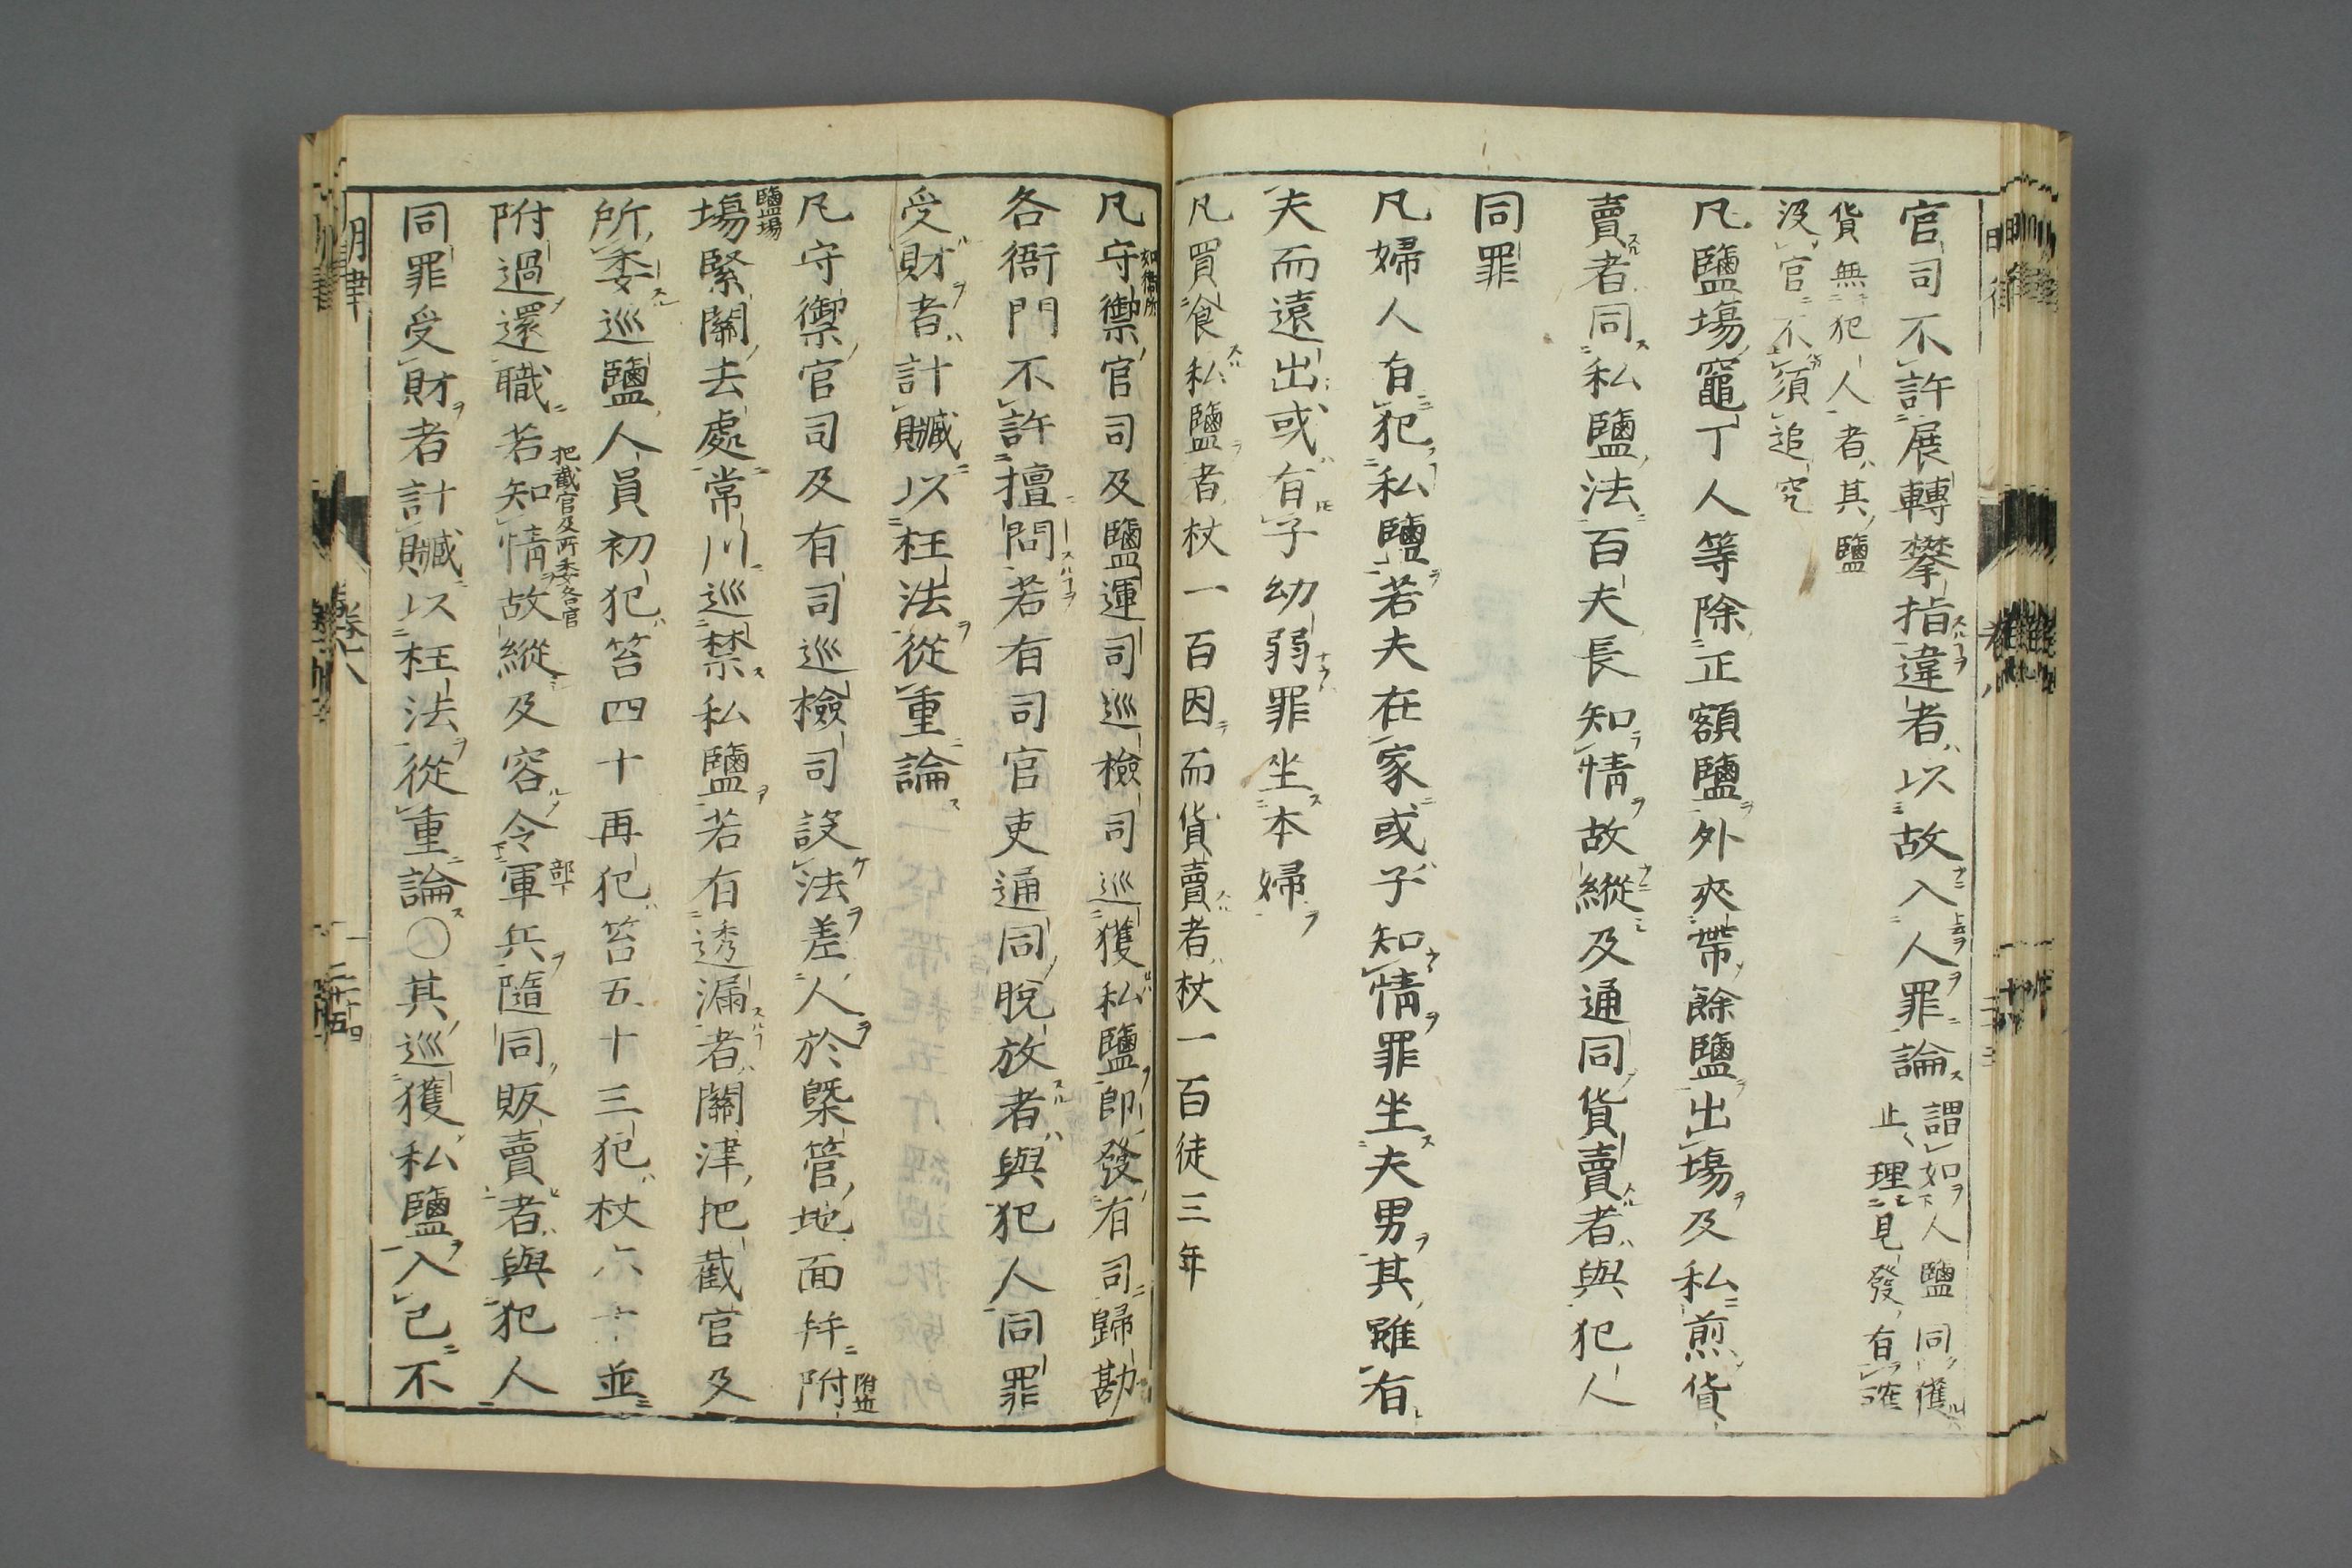 官司不許展轉攀指違者以故入人罪論謂如人鹽同獲
止理見發有確
貨無犯人者其鹽
沒官不須追究
凡鹽場竈丁人等除正額鹽外夾帶餘鹽出場及私煎貨
賣者同私鹽法百夫長知情故縱及通同貨賣者與犯人
同罪
凡婦人有犯私鹽若夫在家或子知情罪坐夫男其雖有
夫而遠出或有子幼弱罪坐本婦
凡買食私鹽者杖一百因而貨賣者杖一百徒三年
凡守禦官司及鹽運司巡檢司巡獲私鹽即發有司歸勘
各衙門不許擅問若有司官吏通同脫放者與犯人同罪
受財者計贓以枉法從重論
凡守禦官司及有司巡檢司設法差人於槩管地面并附
附近
鹽場
場緊關去處常川巡禁私鹽若有透漏者關津把截官及
所委巡鹽人員初犯笞四十再犯笞五十三犯杖六十並
把截官及所委各官
部下
附過還職若知情故縱及容令軍兵隨同販賣者與犯人
同罪受財者計贓以枉法從重論〇其巡獲私鹽入己不
明律
卷八
二十四